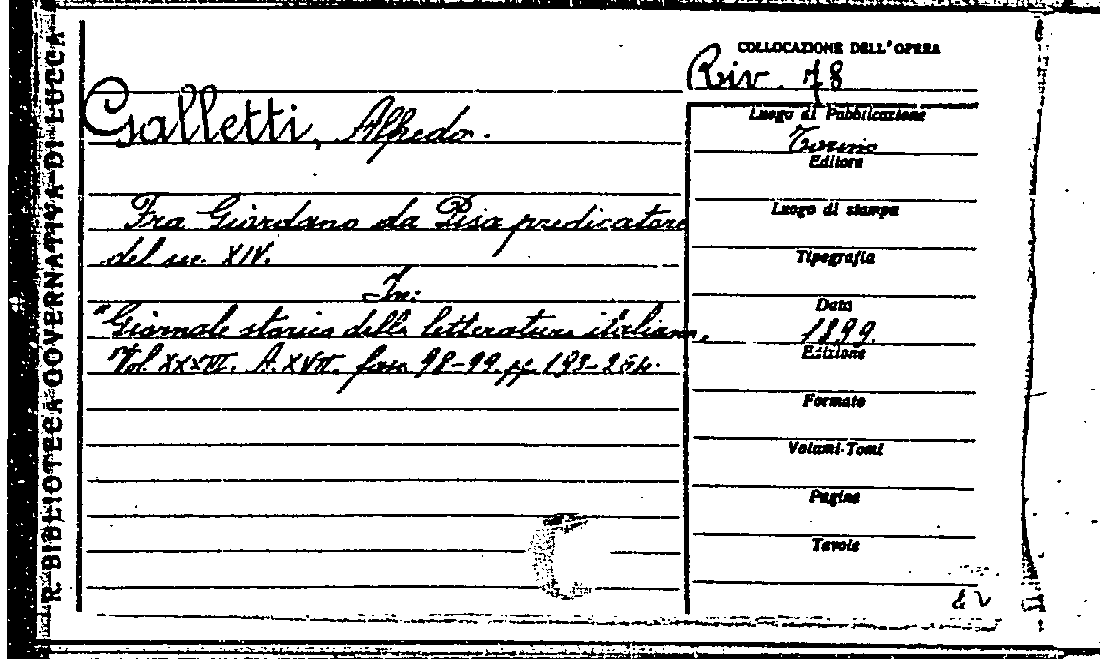 R. BIBLIOTECA GOVERNATIVA DI LUCCA
COLLOCAZIONE DELL'OPERA
Riv. 78
Galletti, Alfredo.
Luogo di Pubblicazione
Torino
Editore
Fra Giordano da Pisa predicatore
del sec. XIV.
Luogo di stampa
Tipografia
In:
"Giornale storico della letteratura italiana,
Vol. XXXIII. A. XVII. fasc. 98-99. pp. 193-264.
Data
1899.
Edizione
Formato
Volumi-Tomi
Pagine
Tavole